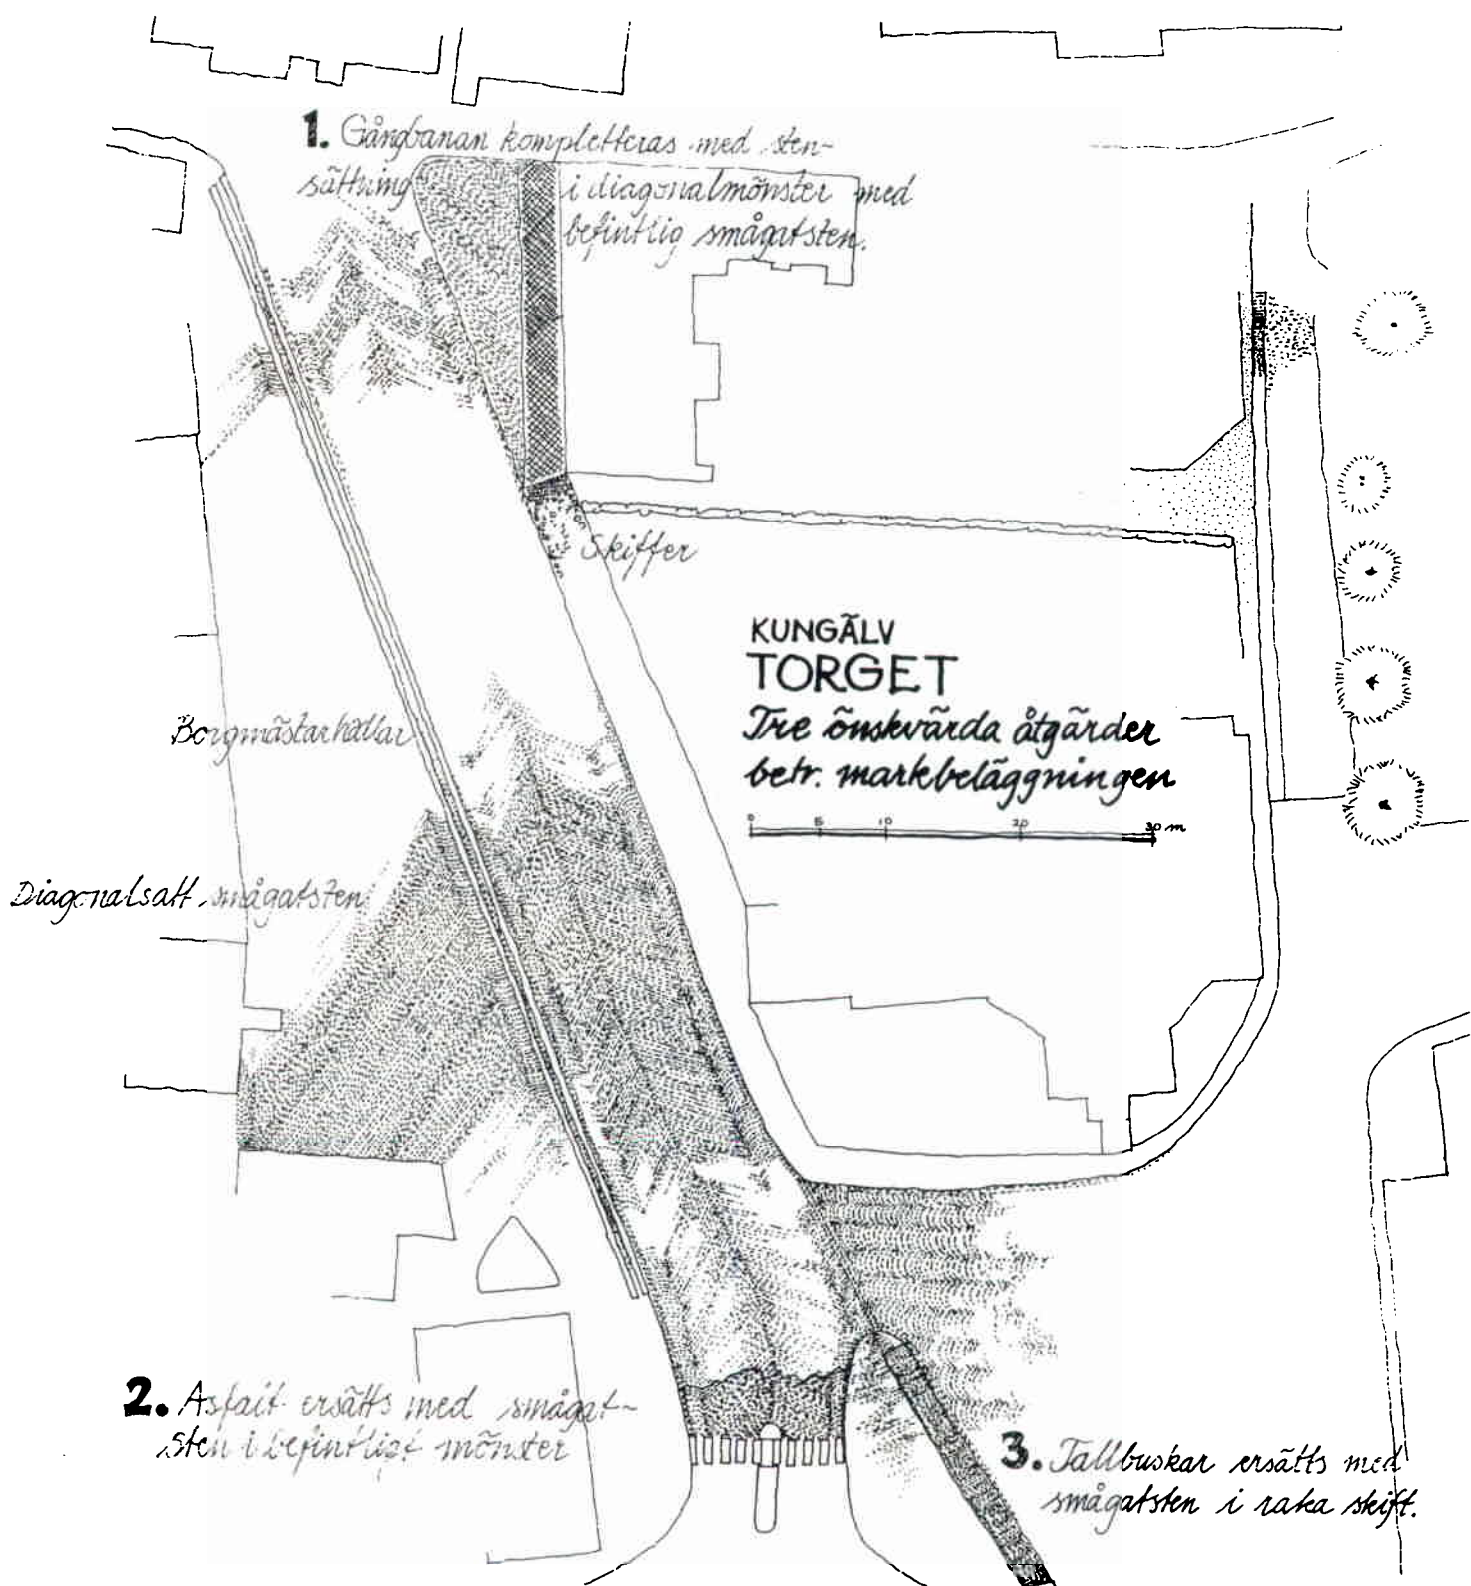 1. Gångbanan kompletteras med sten-
sättning i diagonalmönster med
befintlig smågatsten.
Skiffer
KUNGÄLV
TORGET
Tre önskvärda åtgärder
betr. markbeläggningen
0 5 10 20 30 m
Borgmästarhällar
Diagonalsatt smågatsten
2. Asfalt ersätts med smågat-
sten i befintligt mönster
3. Tallbuskar ersätts med
smågatsten i raka skift.